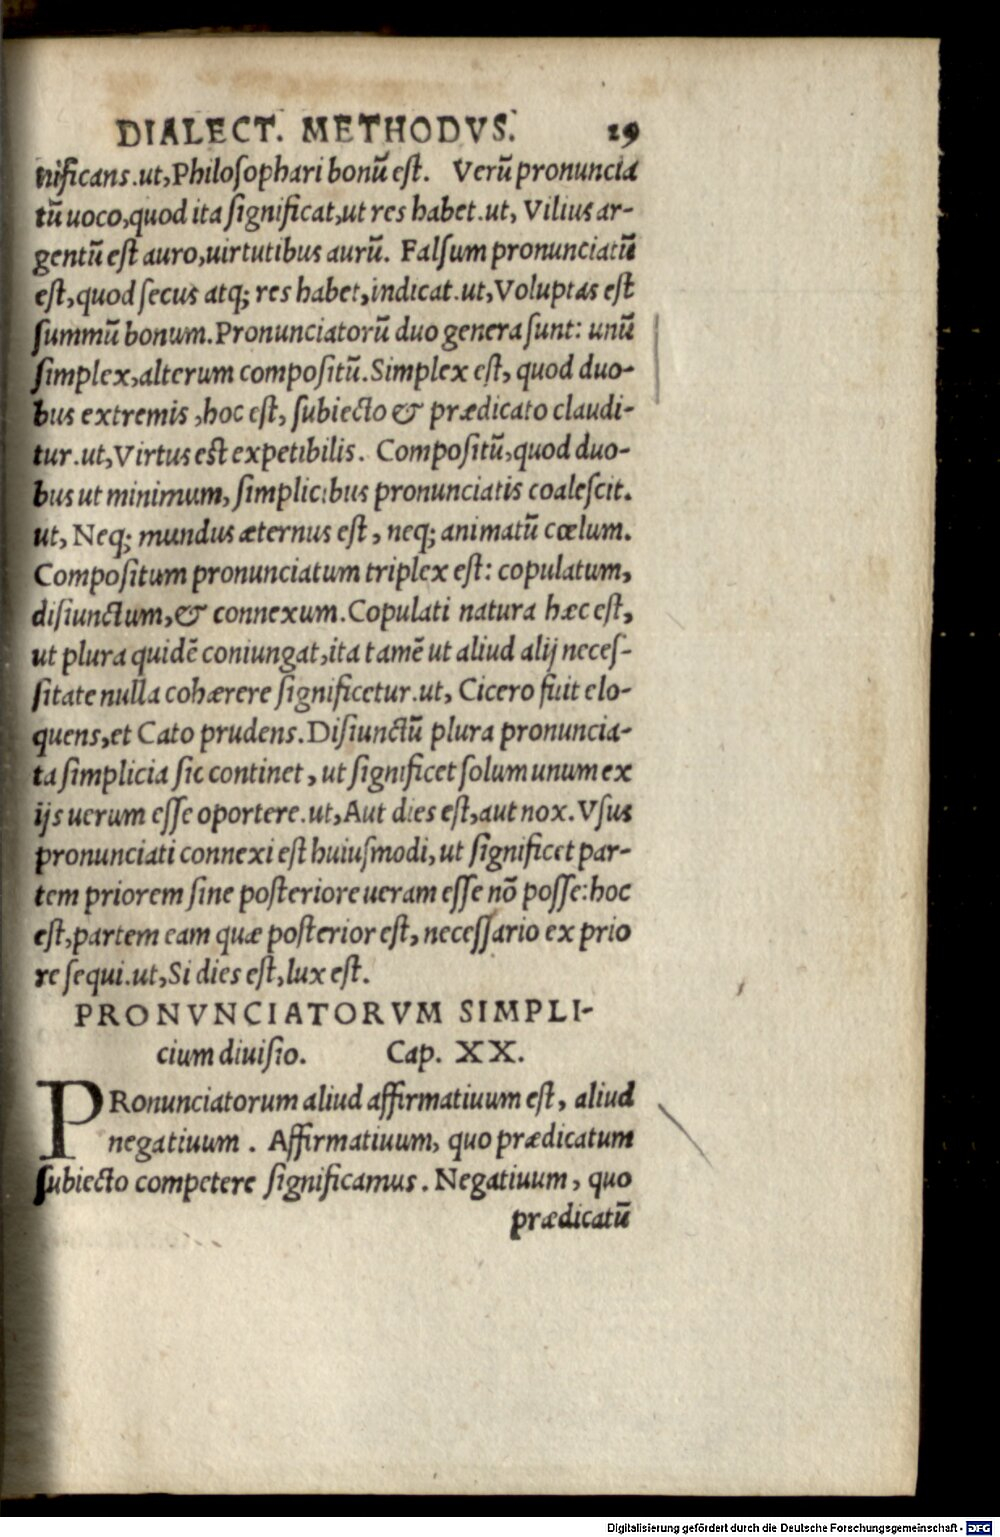 DIALECT. METHODVS. 19
nificans.ut,Philosophari bonũ est. Verũ pronuncia
tũ uoco,quod ita significat,ut res habet.ut, Vilius ar-
gentũ est auro,uirtutibus aurũ. Falsum pronunciatũ
est,quod secus atq; res habet,indicat.ut,Voluptas est
summũ bonum.Pronunciatorũ duo genera sunt: unũ
simplex,alterum compositũ.Simplex est, quod duo-
bus extremis ,hoc est, subiecto & prædicato claudi-
tur.ut,Virtus est expetibilis. Compositũ,quod duo-
bus ut minimum, simplicibus pronunciatis coalescit.
ut, Neq; mundus æternus est , neq; animatũ cœlum.
Compositum pronunciatum triplex est: copulatum,
disiunctum,& connexum.Copulati natura hæc est,
ut plura quidẽ coniungat,ita tamẽ ut aliud alij neces-
sitate nulla cohærere significetur.ut, Cicero fuit elo-
quens,et Cato prudens.Disiunctũ plura pronuncia-
ta simplicia sic continet , ut significet solum unum ex
ijs uerum esse oportere.ut,Aut dies est,aut nox.Vsus
pronunciati connexi est huiusmodi, ut significet par-
tem priorem sine posteriore ueram esse nõ posse:hoc
est,partem eam quæ posterior est, necessario ex prio
re sequi.ut,Si dies est,lux est.
PRONVNCIATORVM SIMPLI-
cium diuisio. Cap. XX.
PRonunciatorum aliud affirmatiuum est, aliud
negatiuum . Affirmatiuum, quo prædicatum
subiecto competere significamus. Negatiuum, quo
prædicatũ
Digitalisierung gefördert durch die Deutsche Forschungsgemeinschaft - DFG